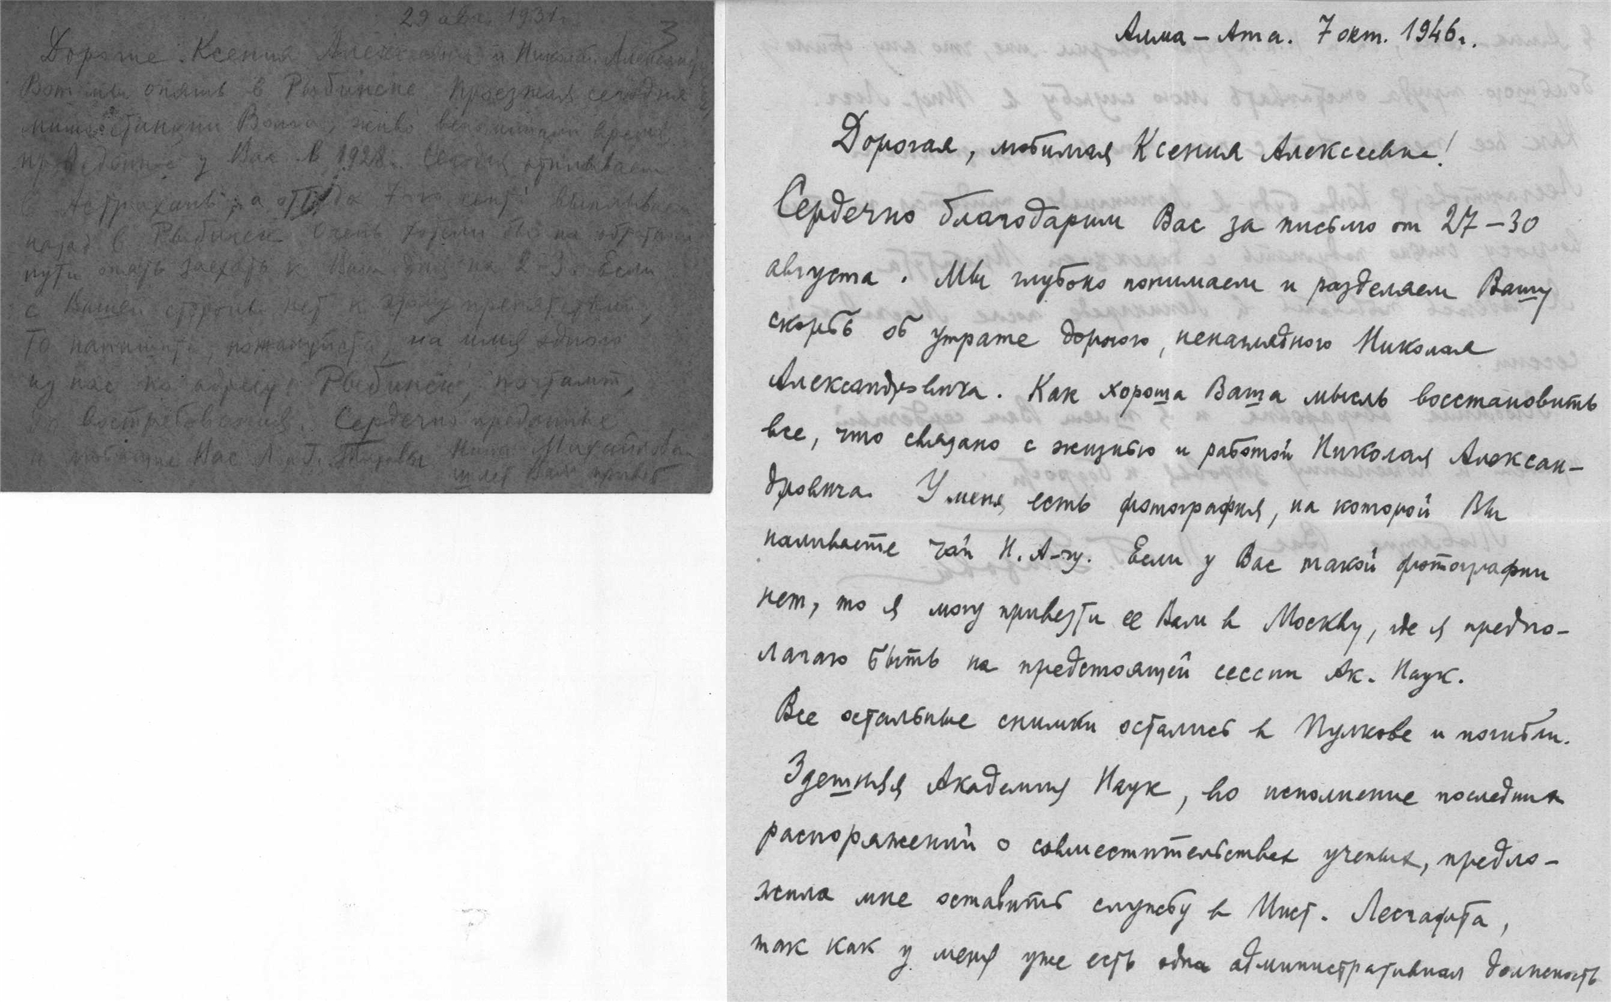 29 авг. 1931г.
3
Дорогие Ксения Алексеевна и Николай Александр
Вот мы опять в Рыбинске. Проезжая сегодня
мимо станции Волга, живо вспомнили время,
проведенное у Вас в 1928г. Сегодня отплываем
в Астрахань, а оттуда 7-го сент. выплываем
назад в Рыбинск. Очень хотели бы на обратном
пути опять заехать к Вам дня на 2-3. Если
с Вашей стороны нет к этому препятствий,
то напишите, пожалуйста, на имя одного
из нас по адресу: Рыбинск, почтамт,
до востребования. Сердечно преданные
и любящие Вас Л. и Г. Тиховы Нина Михайловна
шлет Вам привет
Алма-Ата. 7 окт. 1946г.
Дорогая, любимая Ксения Алексеевна!
Сердечно благодарим Вас за письмо от 27-30
августа. Мы глубоко понимаем и разделяем Вашу
скорбь об утрате дорогого, ненаглядного Николая
Александровича. Как хороша Ваша мысль восстановить
все, что связано с жизнью и работой Николая Алексан-
дровича. У меня есть фотография, на которой Вы
наливаете чай Н. А-чу. Если у Вас такой фотографии
нет, то я могу привезти ее Вам в Москву, где я предпо-
лагаю быть на предстоящей сессии Ак. Наук.
Все остальные снимки остались в Пулкове и погибли.
Здешняя Академия Наук, во исполнение последних
распоряжений о совместительствах ученых, предло-
жила мне оставить службу в Инст. Лесгафта,
так как у меня уже есть одна административная должность